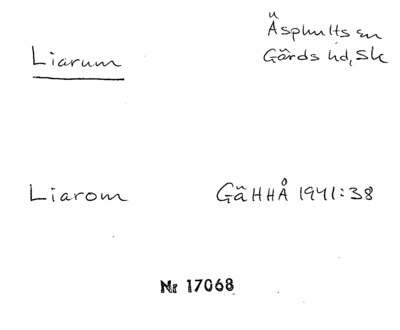 Äsphults sn
Liarum
Gärds hd, Sk
Liarom GäHHÅ 1941:38
Nr 17068